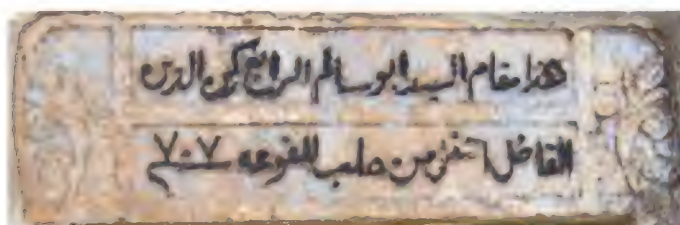 هذا مقام السيد ابو سالم الراعي كمي الدين
الفاضل من حلب للفوعه ٧٠٧